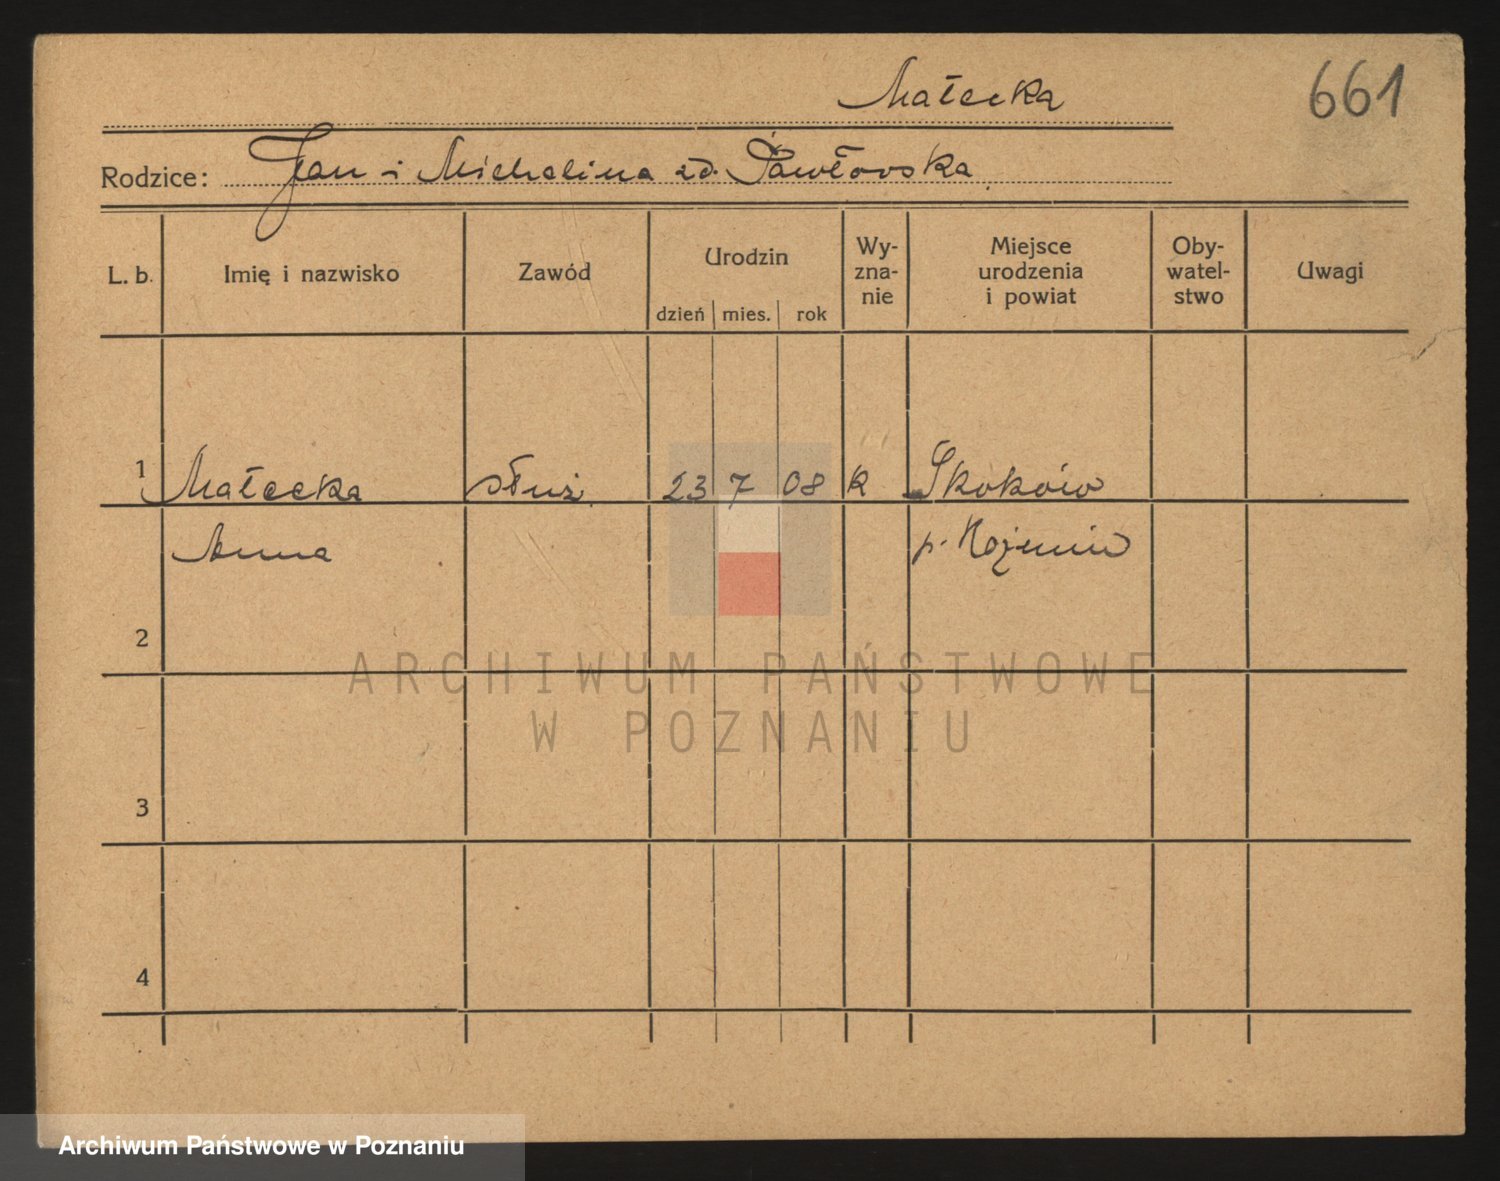 Małecka
661
Rodzice: Jan i Michalina zd. Pawłowska
L. b. Imię i nazwisko Zawód Urodzin Wy-zna-nie Miejsce urodzenia i powiat Oby-watel-stwo Uwagi
dzień mies. rok
1 Małecka służ. 23 7 08 k Skoków
Anna p.
2
3
4
ARCHIWUM PAŃSTWOWE
W POZNANIU
Archiwum Państwowe w Poznaniu